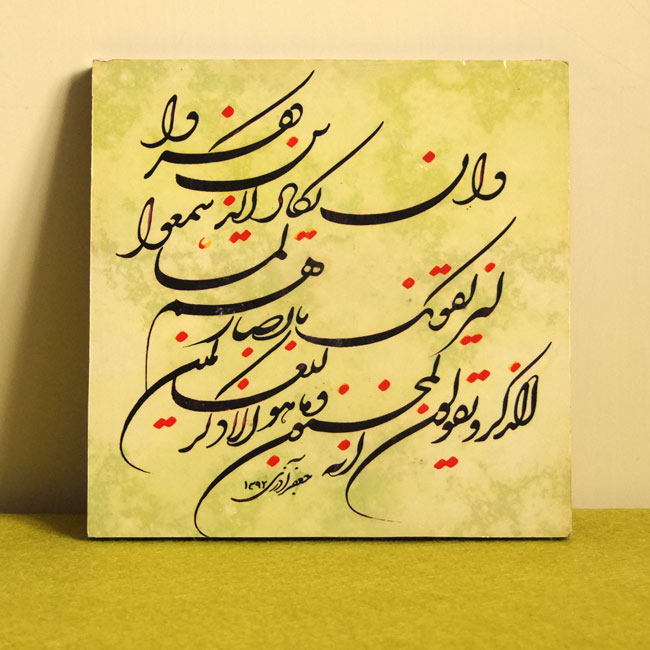 وان یکاد الذین کفروا
لیزلقونک بابصارهم لما سمعوا
الذکر و یقولون انه لمجنون
و ما هو الا ذکر للعالمین
جعفر آذری ۱۳۹۲